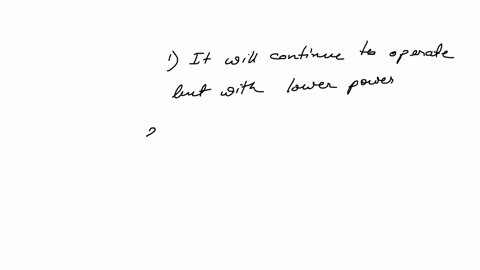 1) It will continue to operate
but with lower power
2